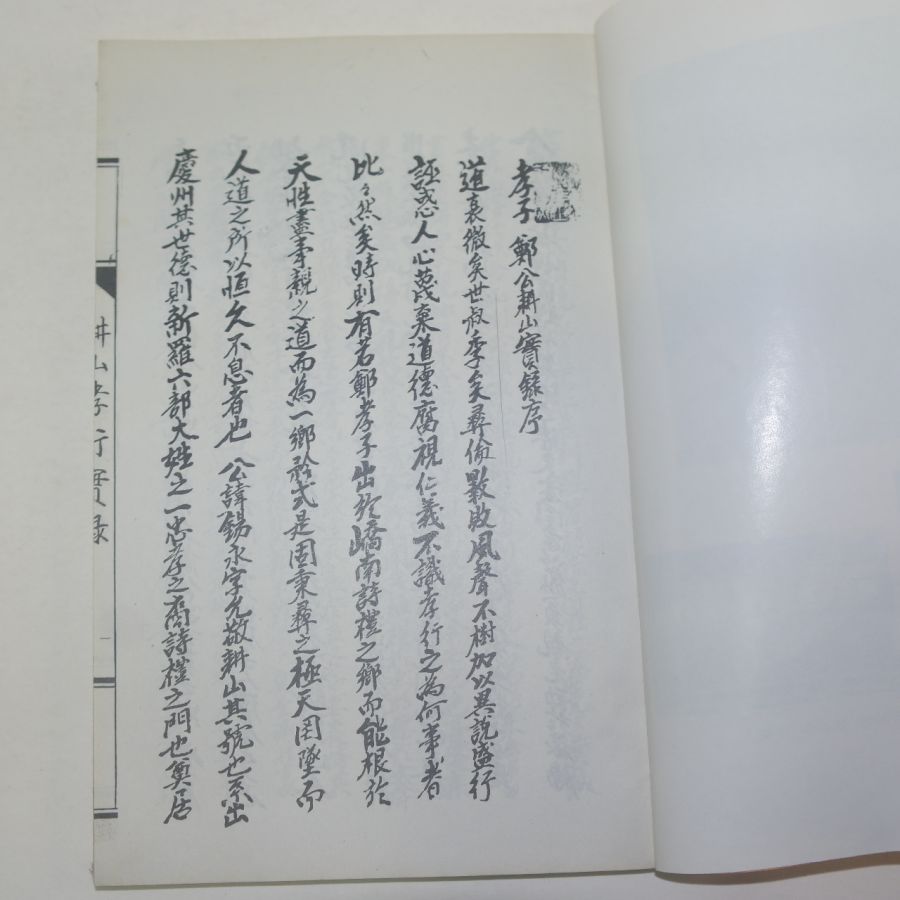 孝子鄭公耕山實錄序
道衰微矣世叔季矣彛倫斁敗風聲不樹加以異說盛行
誣惑人心蔑棄道德腐視仁義不識孝行之為何事者
比々然矣時則有若鄭孝子出於嶠南詩禮之鄉而能根於
天性盡事親之道而為一鄉矜式是固秉彛之極天罔墜而
人道之所以恒久不息者也公諱錫永字允敬耕山其號也系出
慶州其世德則新羅六部大姓之一忠孝之裔詩禮之門也奠居
耕山孝行實錄
一